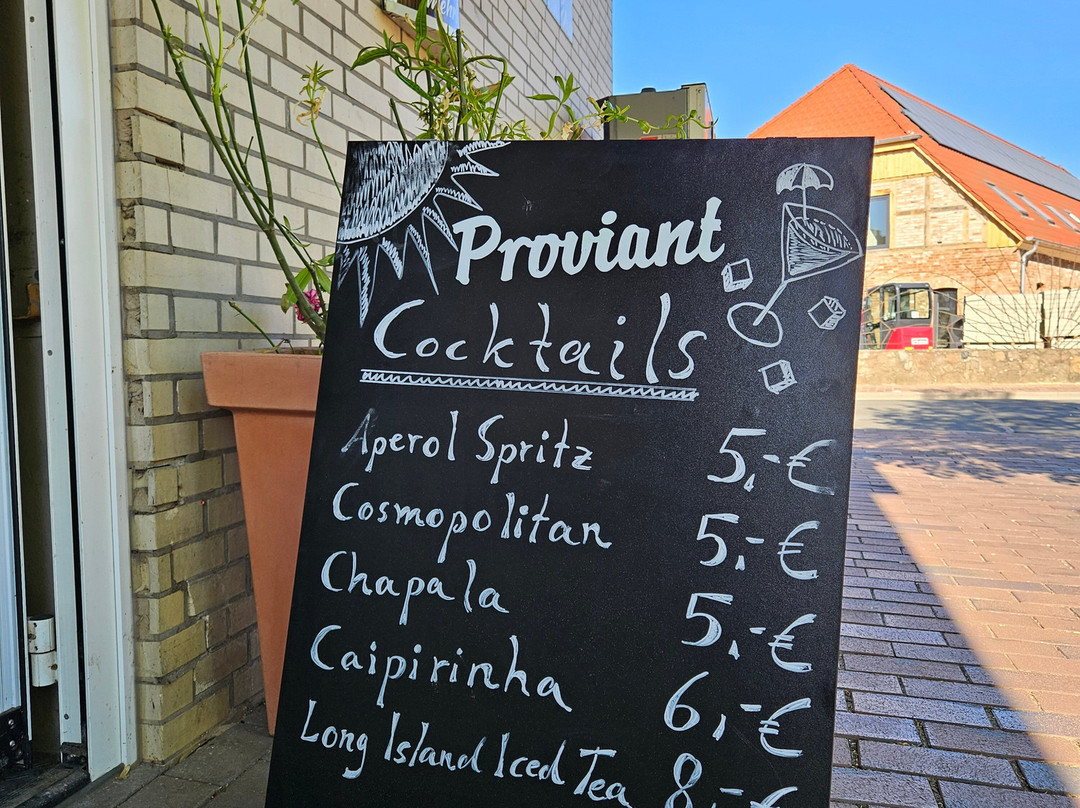 Proviant
Cocktails
Aperol Spritz 5,-€
Cosmopolitan 5,-€
Chapala 5,-€
Caipirinha 6,-€
Long Island Iced Tea 8,-€